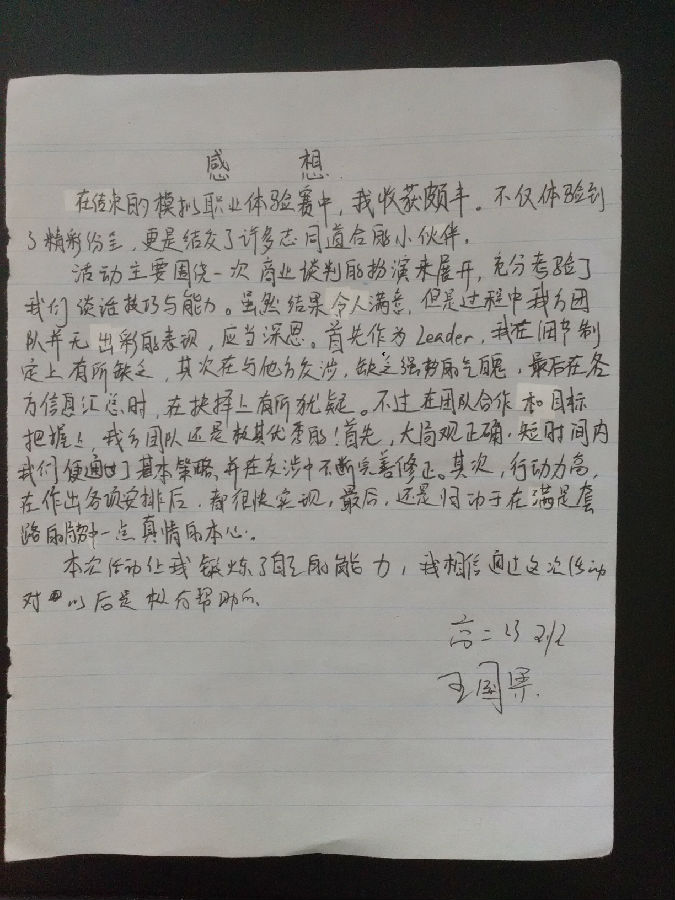 感 想
在这次的模拟职业体验赛中，我收获颇丰。不仅体验到
了精彩纷呈，更是结交了许多志同道合的小伙伴。
活动主要围绕一次商业谈判的扮演来展开，充分考验了
我们谈话技巧与能力。虽然结果令人满意，但是过程中我方团
队并无出彩的表现，应当深思。首先作为Leader，我在细节制
定上有所缺乏，其次在与他方交涉，缺乏强势的气魄，最后在各
方信息汇总时，在抉择上有所犹疑。不过在团队合作和目标
把握上，我方团队还是极其优秀的！首先，大局观正确，短时间内
我们便通过了基本策略，并在交涉中不断完善修正。其次，行动力高，
在作出各项安排后，都很快实现，最后，还是归功于在满是套
路的 中一点真情的本心。
本次活动让我锻炼了自己的能力，我相信通过这次活动
对以后是极有帮助的。
高二 班
王国